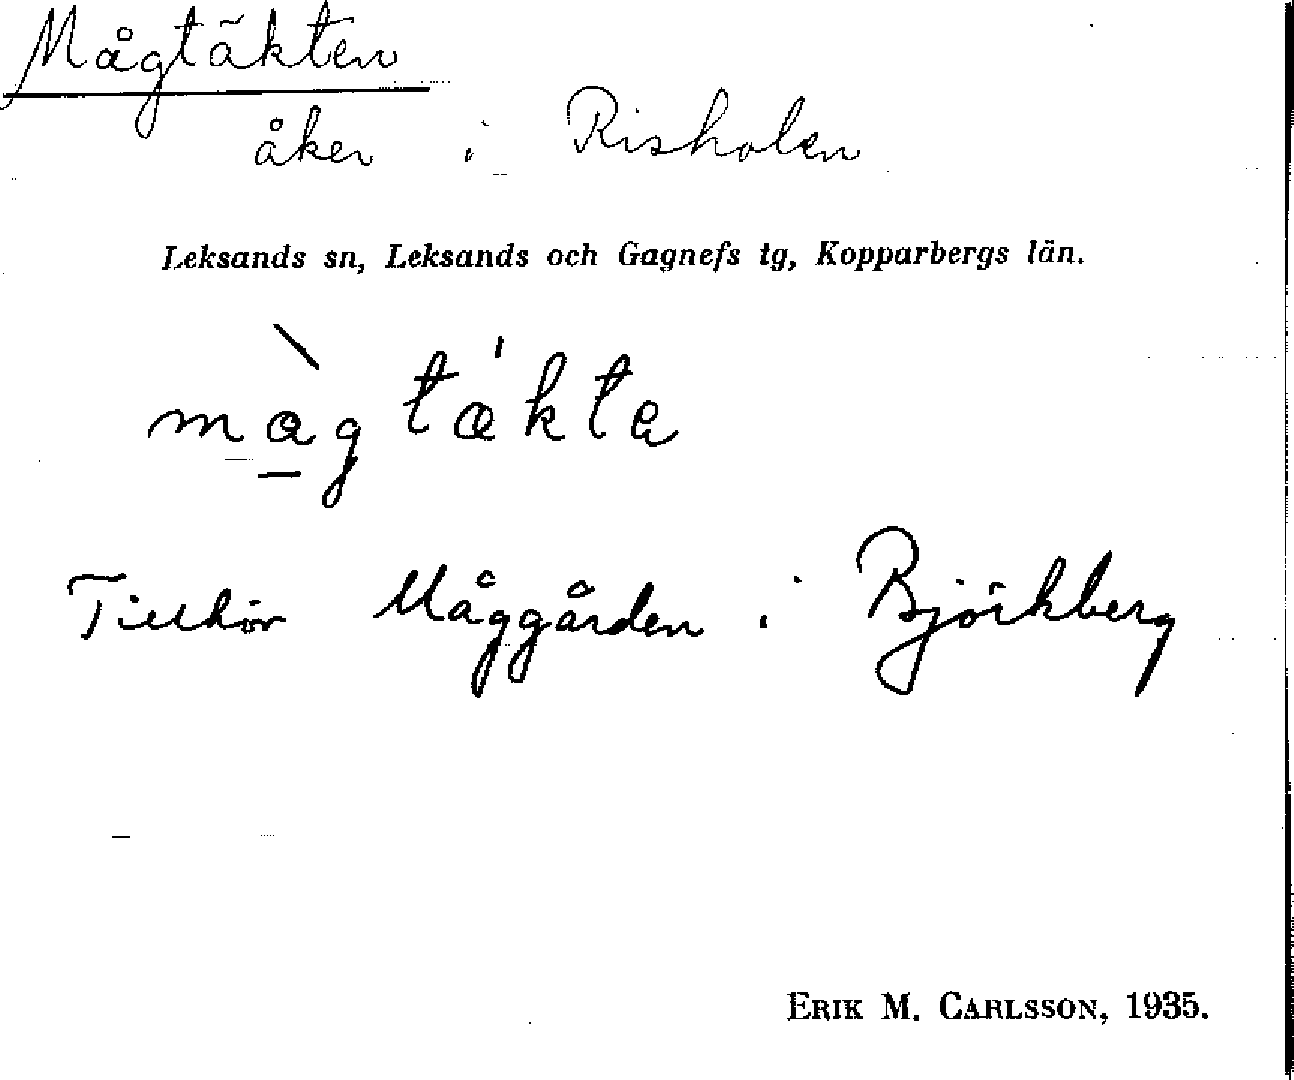 Mågtäkten
åker i Risholen
Leksands sn, Leksands och Gagnefs tg, Kopparbergs län.
må̀gtǽkta
Tillhör Måggården i Björkberg
ERIK M. CARLSSON, 1935.